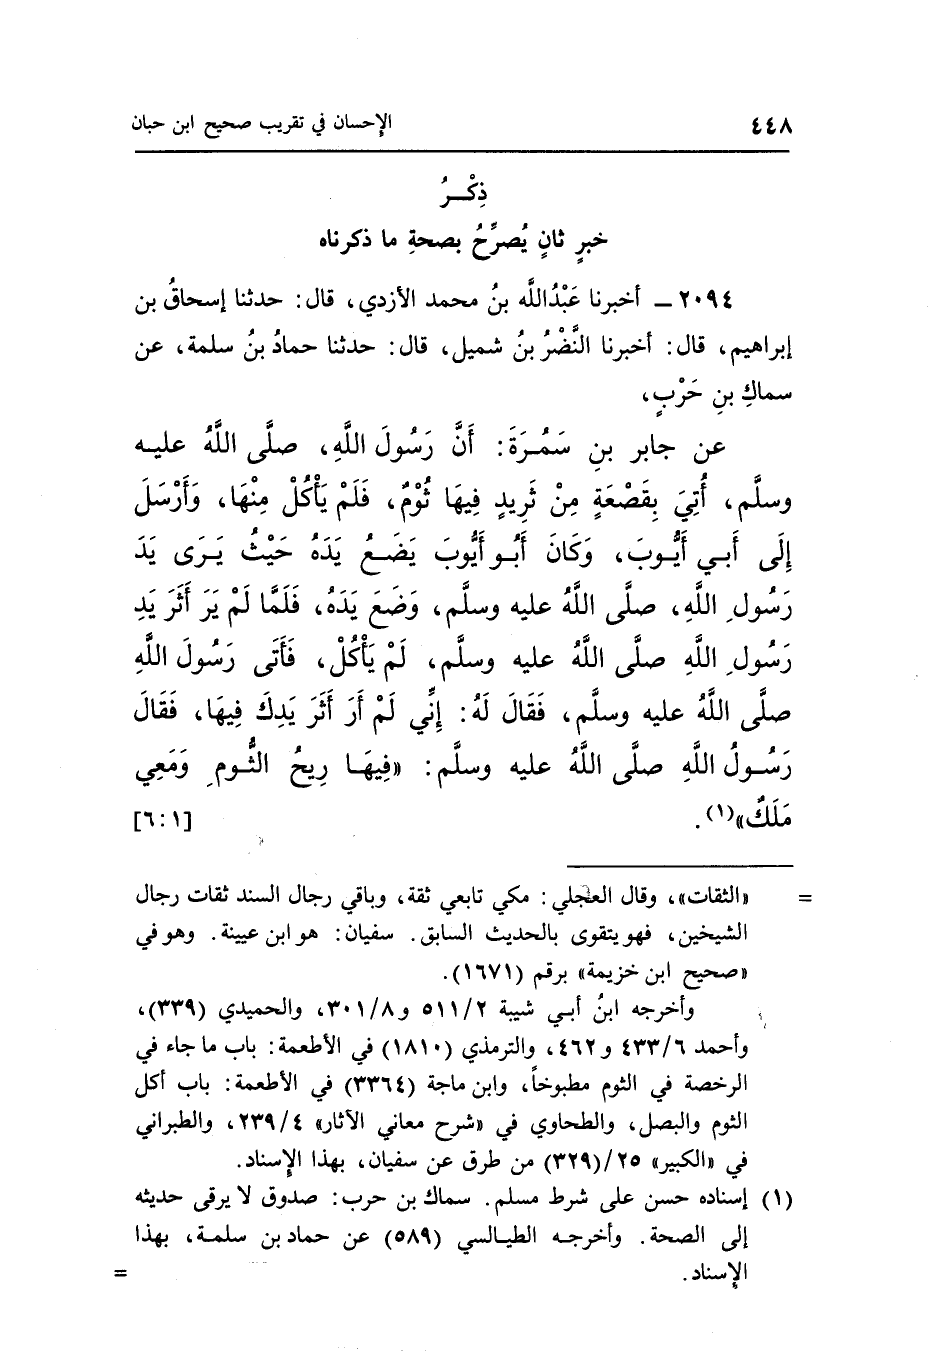 ٤٤٨ الإحسان في تقريب صحيح ابن حبان
ذِكْـرُ
خبرٍ ثانٍ يُصرِّحُ بصحةِ ما ذكرناه
٢٠٩٤ ـ أخبرنا عَبْدُاللَّه بنُ محمد الأزدي، قال: حدثنا إسحاقُ بن
إبراهيم، قال: أخبرنا النَّضْرُ بنُ شميل، قال: حدثنا حمادُ بنُ سلمة، عن
سماكِ بنِ حَرْبٍ،
عن جابر بنِ سَمُـرَةَ: أَنَّ رَسُولَ اللَّهِ، صلَّى اللَّهُ عليـه
وسلَّم، أُتِيَ بِقَصْعَةٍ مِنْ ثَرِيدٍ فِيهَا ثُوْمٌ، فَلَمْ يَأْكُلْ مِنْهَا، وَأَرْسَلَ
إِلَى أَبـي أَيُّـوبَ، وَكَانَ أَبُـو أَيُّوبَ يَضَـعُ يَدَهُ حَيْثُ يَـرَى يَدَ
رَسُولِ اللَّهِ، صلَّى اللَّهُ عليه وسلَّم، وَضَعَ يَدَهُ، فَلَمَّا لَمْ يَرَ أَثَرَ يَدِ
رَسُولِ اللَّهِ صلَّى اللَّهُ عليه وسلَّم، لَمْ يَأْكُلْ، فَأَتَى رَسُولَ اللَّهِ
صلَّى اللَّهُ عليه وسلَّم، فَقَالَ لَهُ: إِنِّي لَمْ أَرَ أَثَرَ يَدِكَ فِيهَا، فَقَالَ
رَسُـولُ اللَّهِ صلَّى اللَّهُ عليه وسلَّم: «فِيهَـا رِيحُ الثُّـومِ وَمَعِي
مَلَكٌ»(١). [٦:١]
= «الثقات»، وقال العجلي: مكي تابعي ثقة، وباقي رجال السند ثقات رجال
الشيخين، فهو يتقوى بالحديث السابق. سفيان: هو ابن عيينة. وهو في
«صحيح ابن خزيمة» برقم (١٦٧١).
وأخرجه ابنُ أبـي شيبة ٥١١/٢ و٣٠١/٨، والحميدي (٣٣٩)،
وأحمد ٤٣٣/٦ و٤٦٢، والترمذي (١٨١٠) في الأطعمة: باب ما جاء في
الرخصة في الثوم مطبوخاً، وابن ماجة (٣٣٦٤) في الأطعمة: باب أكل
الثوم والبصل، والطحاوي في «شرح معاني الآثار» ٢٣٩/٤، والطبراني
في «الكبير» ٢٥/(٣٢٩) من طرق عن سفيان، بهذا الإسناد.
(١) إسناده حسن على شرط مسلم. سماك بن حرب: صدوق لا يرقى حديثه
إلى الصحة. وأخرجـه الطيـالسي (٥٨٩) عن حماد بن سلمـة، بهذا
الإسناد. =